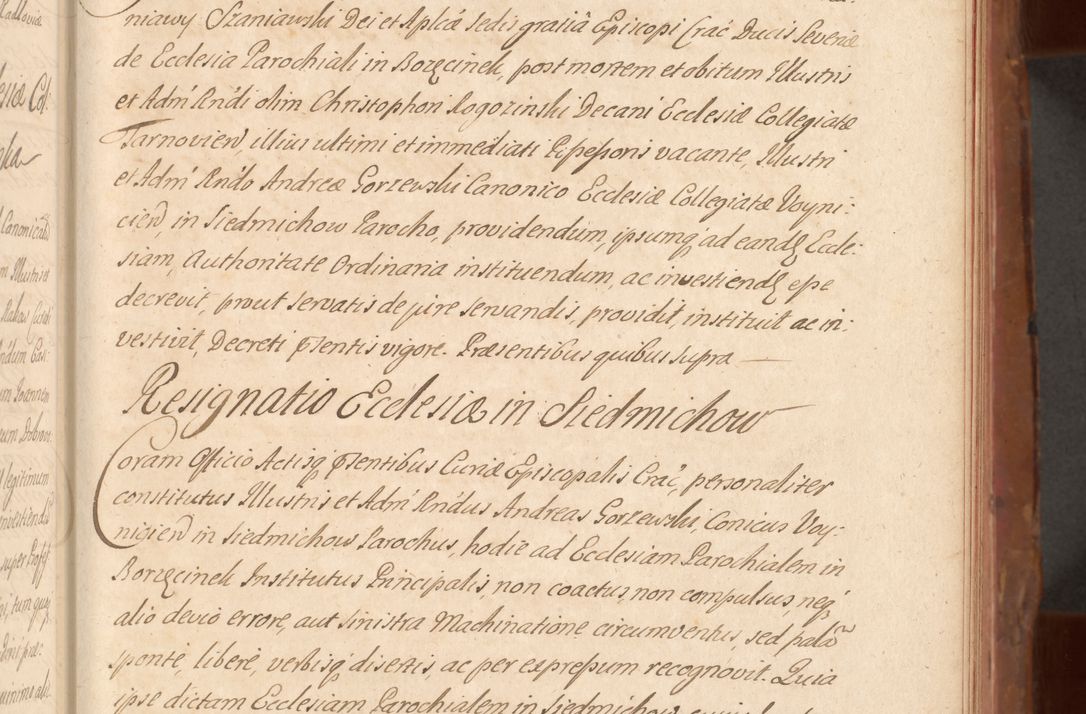 niawy Szaniawski Dei et Aplicæ Sedis gratiâ Episcopi Crac Ducis Severiæ
de Ecclesia Parochiali in Borzęcinek, post mortem et obitum Illustris
et Adm Rndi olim Christophori Rogozinski Decani Ecclesiæ Collegiatæ
Tarnovien, illius ultimi et immediati Pssessoris vacante, Illustri
et Adm Rndo Andreæ Gorzewski Canonico Ecclesiæ Collegiatæ Voyni:
cien, in Siedmichow Parocho, providendum, ipsumq ad eandē Eccle:
siam, Authoritate Ordinaria instituendum, ac investiendū esse
decrevit, prout servatis de jure servandis, providit, instituit ac in:
vestivit, Decreti psentis vigore. Præsentibus quibus supra
Resignatio Ecclesiæ in Siedmichow
Coram Officio Actisq psentibus Curiæ Episcopalis Crac, personaliter
constitutus Illustris et Adm Rndus Andreas Gorzewski, Conicus Voy:
nicien in Siedmichow Parochus, hodie ad Ecclesiam Parochialem in
Borzęcinek Institutus Principalis, non coactus, non compulsus, neq
alio devio errore, aut sinistra Machinatione circumventus, sed palā
sponte, liberè, verbisq disertis, ac per expressum recognovit. Quia
ipse dictam Ecclesiam Parochialem in Siedmichow